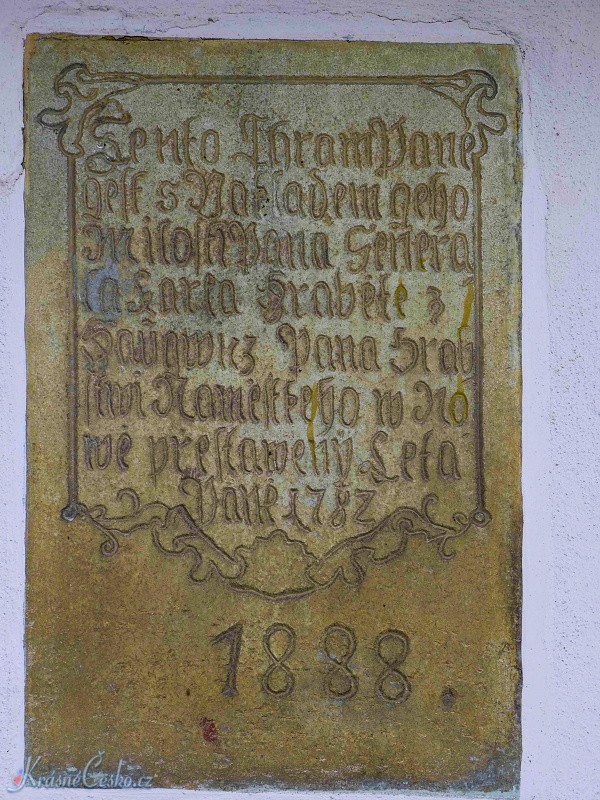 Tento Chram Pane
gest s Nakladem geho
Milosti Pana Genera
la Karla Hraběte z
Haugwicz Pana Hrab
stwi Namiestskeho w No
wě prestaweny Leta
Pane 1782
1888.
KrásnéČesko.cz